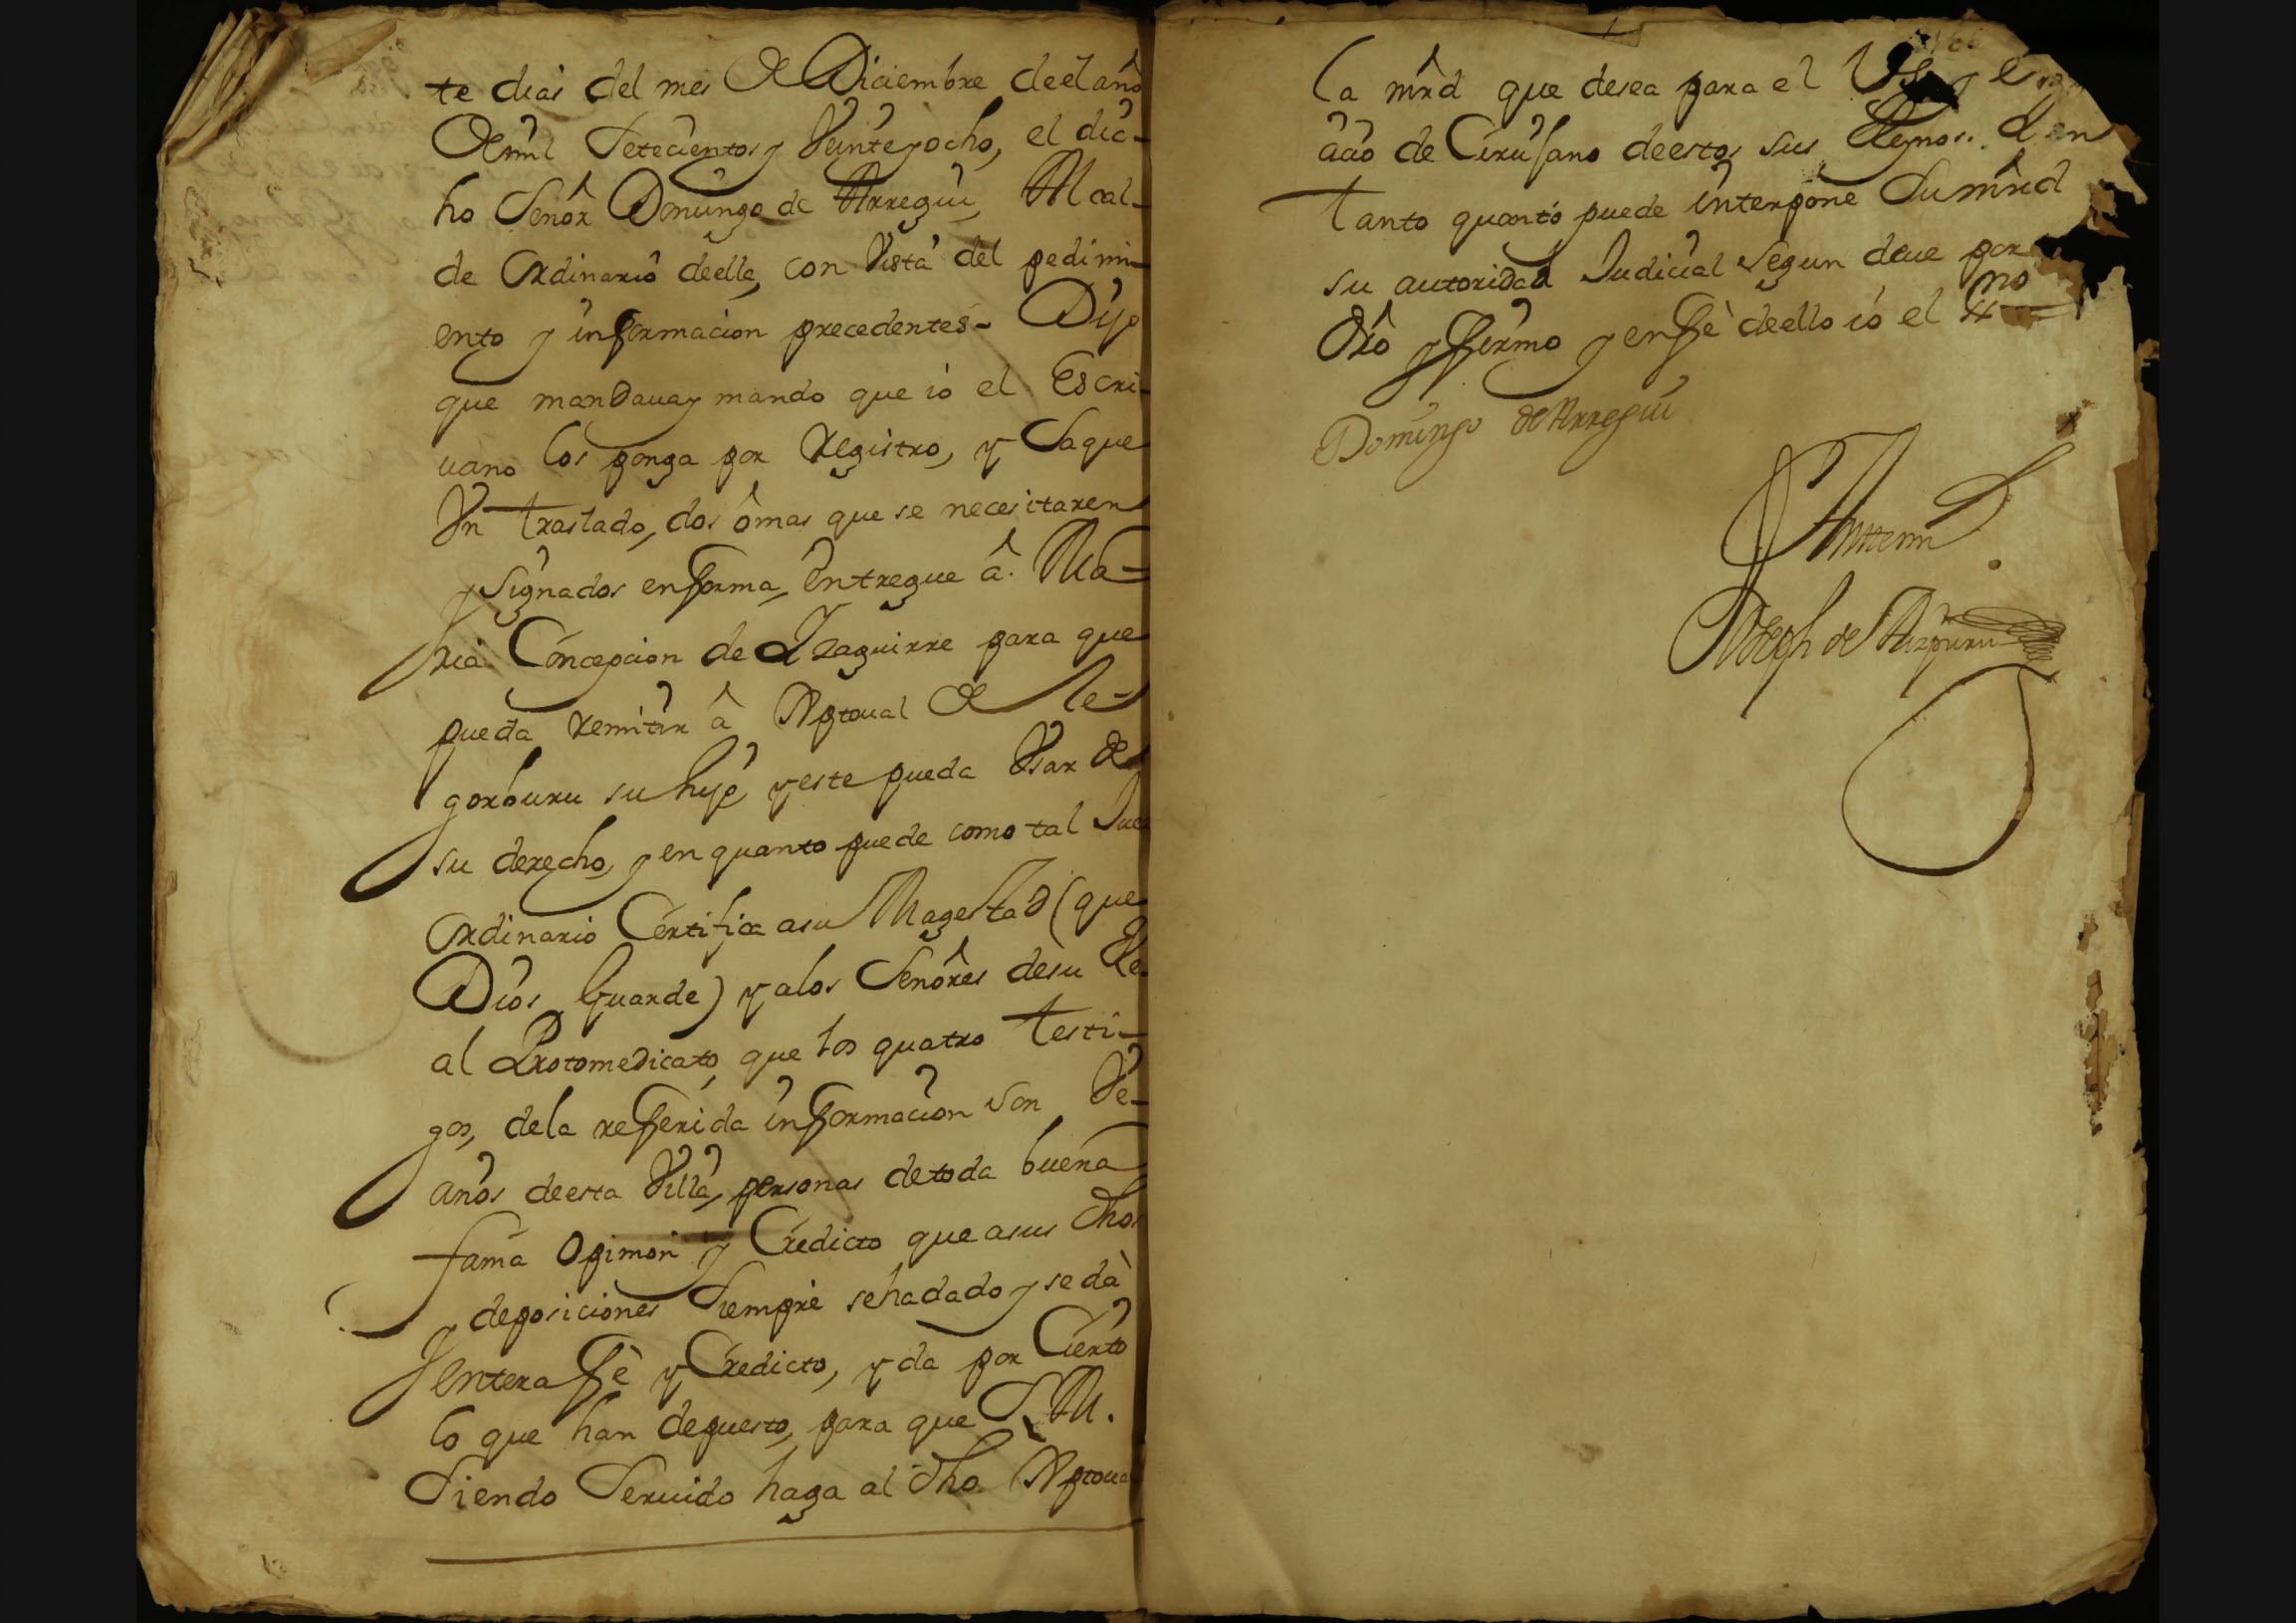 te dias del mes de Diciembre de el año
de mil Setecientos y Veinte y ocho, el dic-
ho Señor Domingo de Arregui, Alcal-
de Ordinario de ella, con Vista del pedimi-
ento y informacion precedentes - Dijo
que mandaua y mando que io el Escri-
uano los ponga por Registro, y Saque
Vn traslado, dos ô mas que se necesitaren
y Signados en forma, Entregue â Ma-
ria Concepcion de Yzaguirre para que
pueda remitir â Xptoual de Le-
gorburu su hijo, y este pueda Vsar de
su derecho, y en quanto puede como tal Juez
Ordinario Certifica a su Magestad (que
Dios Guarde) y a los Señores de su Re-
al Protomedicato, que los quatro testi-
gos, de la referida informacion son Ve-
çinos de esta Villa, personas de toda buena
fama Opinion y Credicto que a sus dhos
y deposiciones Siempre se ha dado y se dà
entera feè y Credicto, y da por Cierto
lo que han depuesto, para que S.M.
Siendo Seruido haga al dho. Xptoual
la mrd que desea para el Vso y
de Cirujano de estos sus Reynos. Y en
tanto quanto puede interpone Su mrd
su autoridad Judicial Segun deue por
dro y firmo y en feè de ello io el Ssno
Domingo de Arregui
Antemi
Joseph de Aizpuru